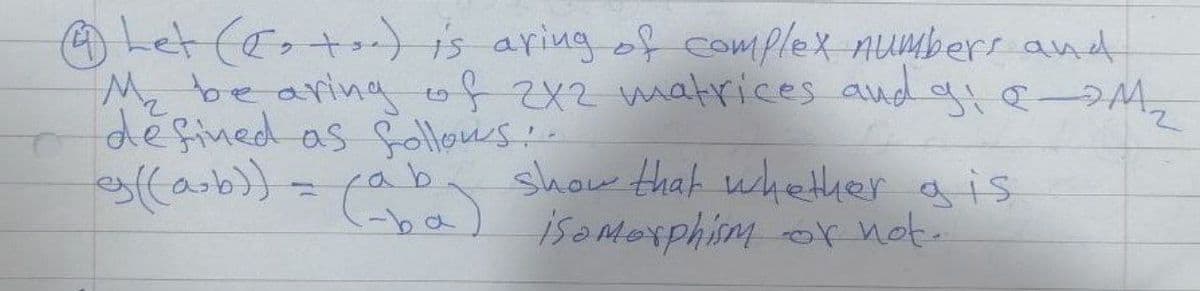 ④ Let (ℂ, +, .) is aring of complex numbers and
M₂ be aring of 2x2 matrices and g: ℂ → M₂
defined as follows:-
g((a,b)) = (a b
-b a) show that whether g is
isomorphism or not.